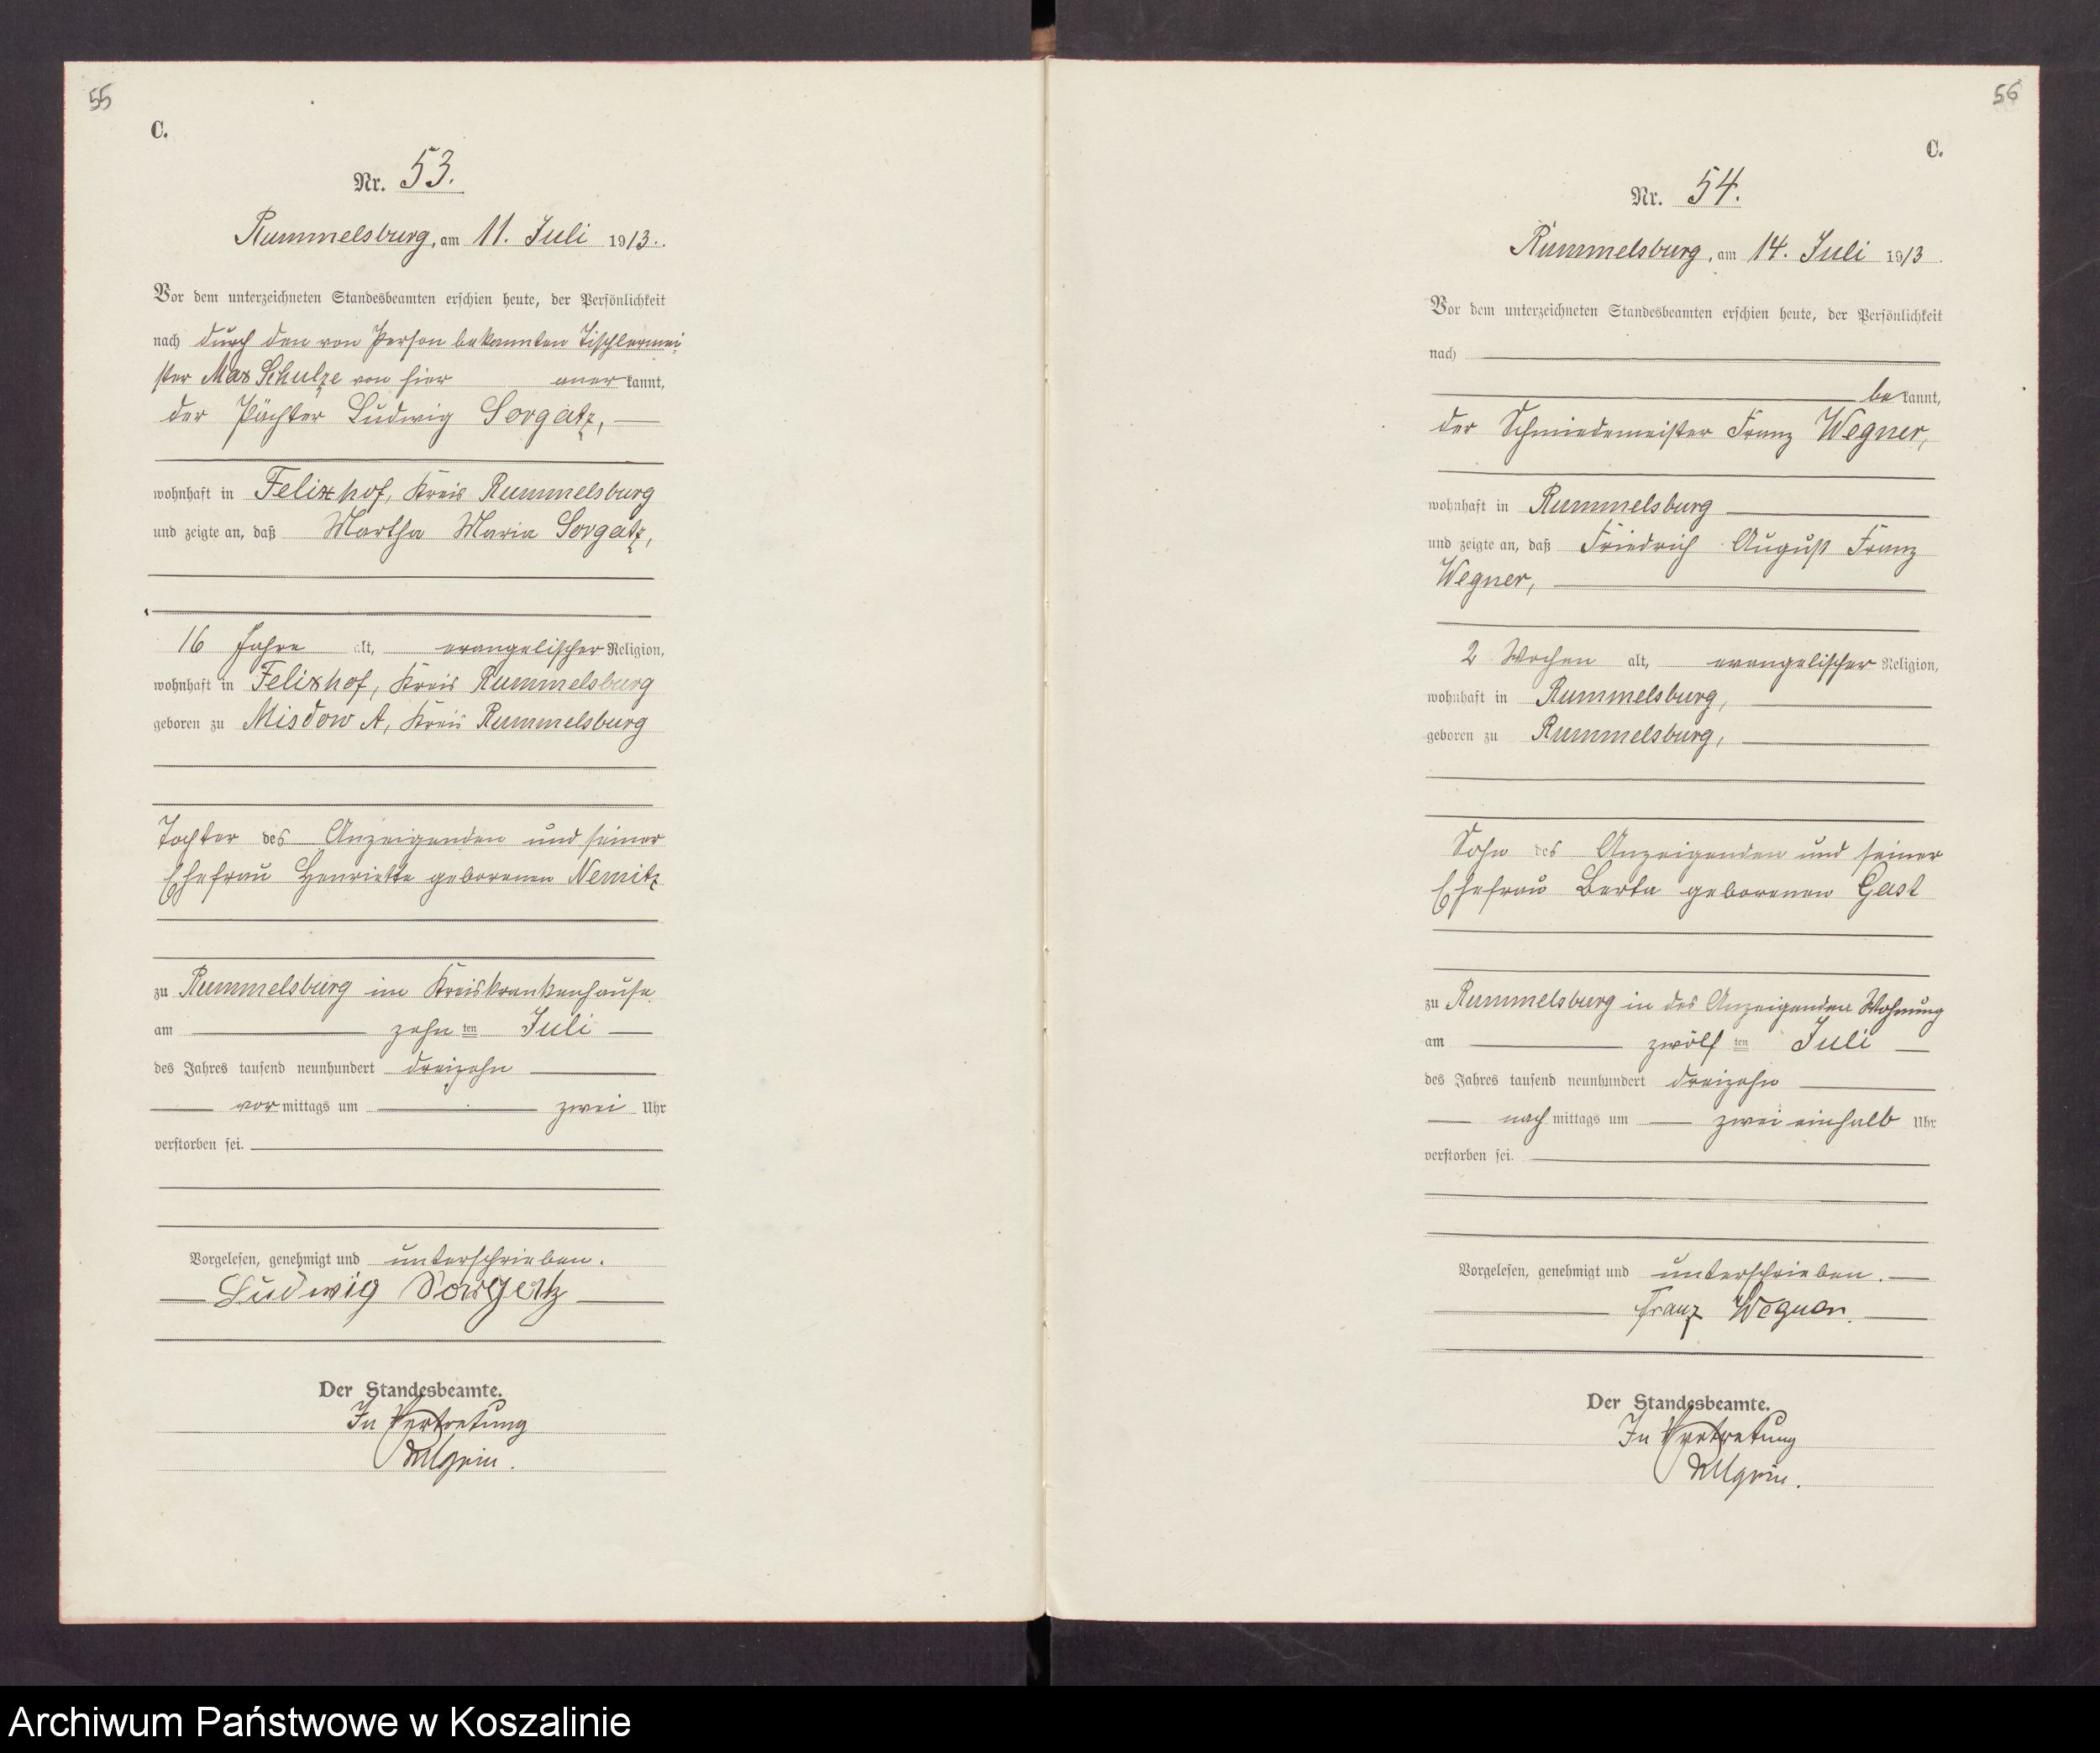 55
C.
Nr. 53.
Rummelsburg, am 11. Juli 1913.
Vor dem unterzeichneten Standesbeamten erschien heute, der Persönlichkeit
nach durch den von Person bekannten Tischlermei-
ster Max Schulze von hier anerkannt,
der Pächter Ludwig Sorgatz,
wohnhaft in Felixhof, Kreis Rummelsburg
und zeigte an, daß Martha Maria Sorgatz,
16 Jahre alt, evangelischer Religion,
wohnhaft in Felixhof, Kreis Rummelsburg
geboren zu Misdow A, Kreis Rummelsburg
Tochter des Anzeigenden und seiner
Ehefrau Henriette geborenen Nemitz
zu Rummelsburg im Kreiskrankenhause
am zehnten Juli
des Jahres tausend neunhundert dreizehn
vormittags um zwei Uhr
verstorben sei.
Vorgelesen, genehmigt und unterschrieben.
Ludwig Sorgatz
Der Standesbeamte.
In Vertretung
56
C.
Nr. 54.
Rummelsburg, am 14. Juli 1913.
Vor dem unterzeichneten Standesbeamten erschien heute, der Persönlichkeit
nach
bekannt,
der Schmiedemeister Franz Wegner,
wohnhaft in Rummelsburg
und zeigte an, daß Friedrich August Franz
Wegner,
2 Wochen alt, evangelischer Religion,
wohnhaft in Rummelsburg,
geboren zu Rummelsburg,
Sohn des Anzeigenden und seiner
Ehefrau Berta geborenen Gast
zu Rummelsburg in des Anzeigenden Wohnung
am zwölften Juli
des Jahres tausend neunhundert dreizehn
nachmittags um zwei einhalb Uhr
verstorben sei.
Vorgelesen, genehmigt und unterschrieben.
Franz Wegner.
Der Standesbeamte.
In Vertretung
Archiwum Państwowe w Koszalinie